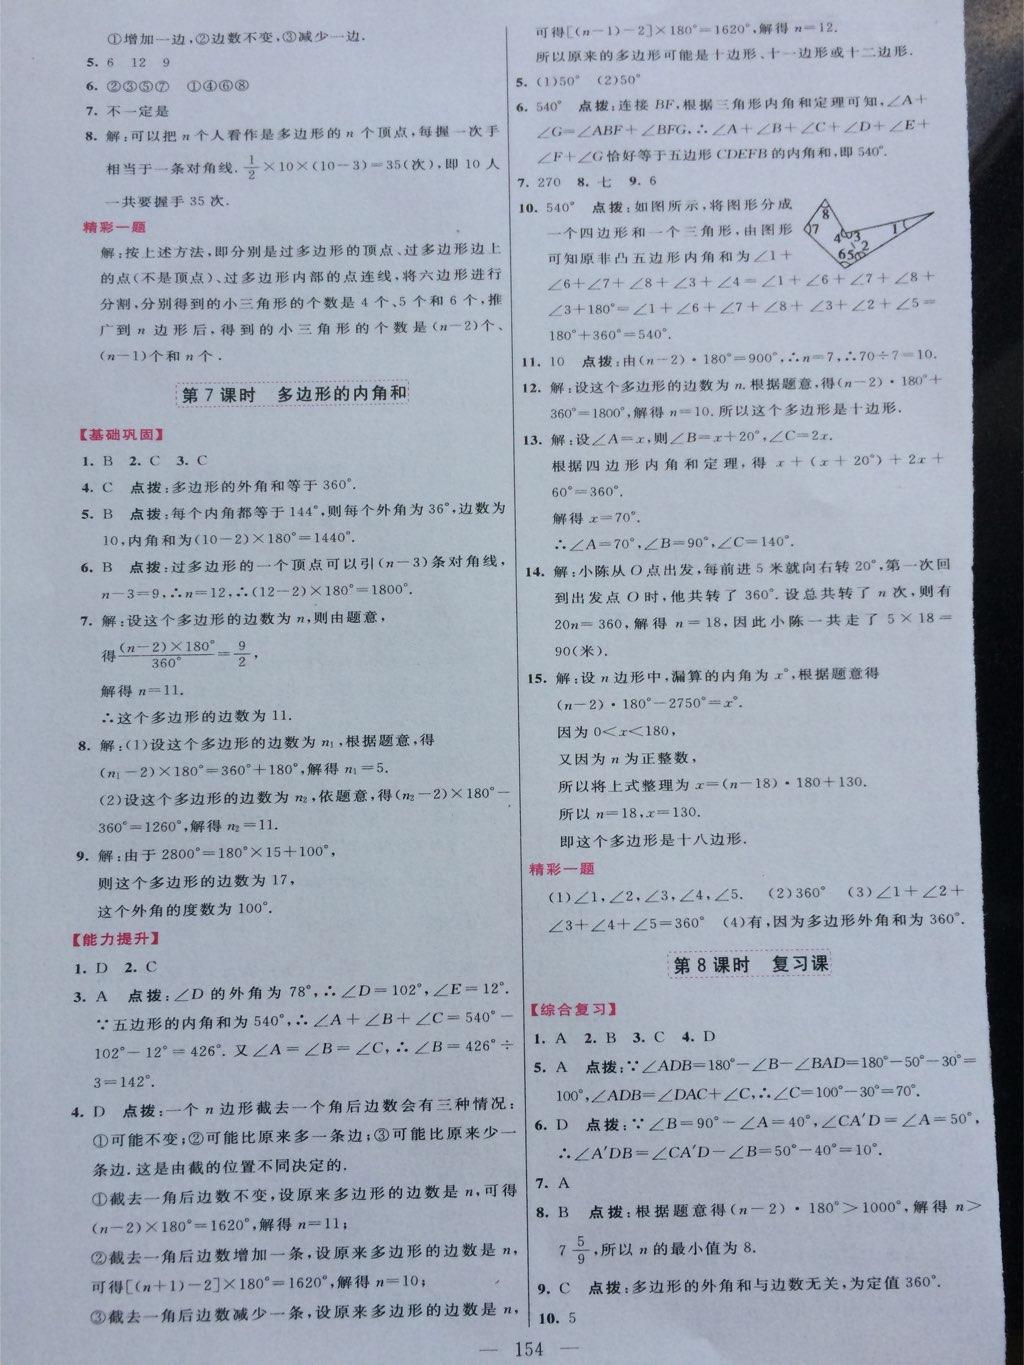 ①增加一边,②边数不变,③减少一边.
5. 6 12 9
6. ②③⑤⑦ ①④⑥⑧
7. 不一定是
8. 解:可以把 n 个人看作是多边形的 n 个顶点,每握一次手
相当于一条对角线. 1/2×10×(10-3)=35(次),即 10 人
一共要握手 35 次.
精彩一题
解:按上述方法,即分别是过多边形的顶点、过多边形边上
的点(不是顶点)、过多边形内部的点连线,将六边形进行
分割,分别得到的小三角形的个数是 4 个、5 个和 6 个,推
广到 n 边形后,得到的小三角形的个数是(n-2)个、
(n-1)个和 n 个.
第 7 课时 多边形的内角和
【基础巩固】
1. B 2. C 3. C
4. C 点拨:多边形的外角和等于 360°.
5. B 点拨:每个内角都等于 144°,则每个外角为 36°,边数为
10,内角和为(10-2)×180°=1440°.
6. B 点拨:过多边形的一个顶点可以引(n-3)条对角线,
n-3=9,∴n=12,∴(12-2)×180°=1800°.
7. 解:设这个多边形的边数为 n,则由题意,
得 (n-2)×180°/360° = 9/2,
解得 n=11.
∴这个多边形的边数为 11.
8. 解:(1)设这个多边形的边数为 n₁,根据题意,得
(n₁-2)×180°=360°+180°,解得 n₁=5.
(2)设这个多边形的边数为 n₂,依题意,得(n₂-2)×180°-
360°=1260°,解得 n₂=11.
9. 解:由于 2800°=180°×15+100°,
则这个多边形的边数为 17,
这个外角的度数为 100°.
【能力提升】
1. D 2. C
3. A 点拨:∠D 的外角为 78°,∴∠D=102°,∠E=12°.
∵五边形的内角和为 540°,∴∠A+∠B+∠C=540°-
102°-12°=426°. 又∠A=∠B=∠C,∴∠B=426°÷
3=142°.
4. D 点拨:一个 n 边形截去一个角后边数会有三种情况:
①可能不变;②可能比原来多一条边;③可能比原来少一
条边.这是由截的位置不同决定的.
①截去一角后边数不变,设原来多边形的边数是 n,可得
(n-2)×180°=1620°,解得 n=11;
②截去一角后边数增加一条,设原来多边形的边数是 n,
可得[(n+1)-2]×180°=1620°,解得 n=10;
③截去一角后边数减少一条,设原来多边形的边数是 n,
可得[(n-1)-2]×180°=1620°,解得 n=12.
所以原来的多边形可能是十边形、十一边形或十二边形.
5. (1)50° (2)50°
6. 540° 点拨:连接 BF,根据三角形内角和定理可知,∠A+
∠G=∠ABF+∠BFG,∴∠A+∠B+∠C+∠D+∠E+
∠F+∠G恰好等于五边形 CDEFB 的内角和,即 540°.
7. 270 8. 七 9. 6
10. 540° 点拨:如图所示,将图形分成
一个四边形和一个三角形,由图形
可知原非凸五边形内角和为∠1+
∠6+∠7+∠8+∠3+∠4=∠1+∠6+∠7+∠8+
∠3+180°=∠1+∠6+∠7+∠8+∠3+∠2+∠5=
180°+360°=540°.
8
7
4 3
1
6 5 2
11. 10 点拨:由(n-2)·180°=900°,∴n=7,∴70÷7=10.
12. 解:设这个多边形的边数为 n.根据题意,得(n-2)·180°+
360°=1800°,解得 n=10.所以这个多边形是十边形.
13. 解:设∠A=x,则∠B=x+20°,∠C=2x.
根据四边形内角和定理,得 x+(x+20°)+2x+
60°=360°.
解得 x=70°.
∴∠A=70°,∠B=90°,∠C=140°.
14. 解:小陈从O 点出发,每前进 5 米就向右转 20°,第一次回
到出发点 O 时,他共转了 360°. 设总共转了 n 次,则有
20n=360,解得 n=18,因此小陈一共走了 5×18=
90(米).
15. 解:设 n 边形中,漏算的内角为 x°,根据题意得
(n-2)·180°-2750°=x°.
因为 0<x<180,
又因为 n 为正整数,
所以将上式整理为 x=(n-18)·180+130.
所以 n=18,x=130.
即这个多边形是十八边形.
精彩一题
(1)∠1,∠2,∠3,∠4,∠5. (2)360° (3)∠1+∠2+
∠3+∠4+∠5=360° (4)有,因为多边形外角和为 360°.
第 8 课时 复习课
【综合复习】
1. A 2. B 3. C 4. D
5. A 点拨:∵∠ADB=180°-∠B-∠BAD=180°-50°-30°=
100°,∠ADB=∠DAC+∠C,∴∠C=100°-30°=70°.
6. D 点拨:∵∠B=90°-∠A=40°,∠CA′D=∠A=50°,
∴∠A′DB=∠CA′D-∠B=50°-40°=10°.
7. A
8. B 点拨:根据题意得(n-2)·180°>1000°,解得 n>
7 5/9,所以 n 的最小值为 8.
9. C 点拨:多边形的外角和与边数无关,为定值 360°.
10. 5
— 154 —